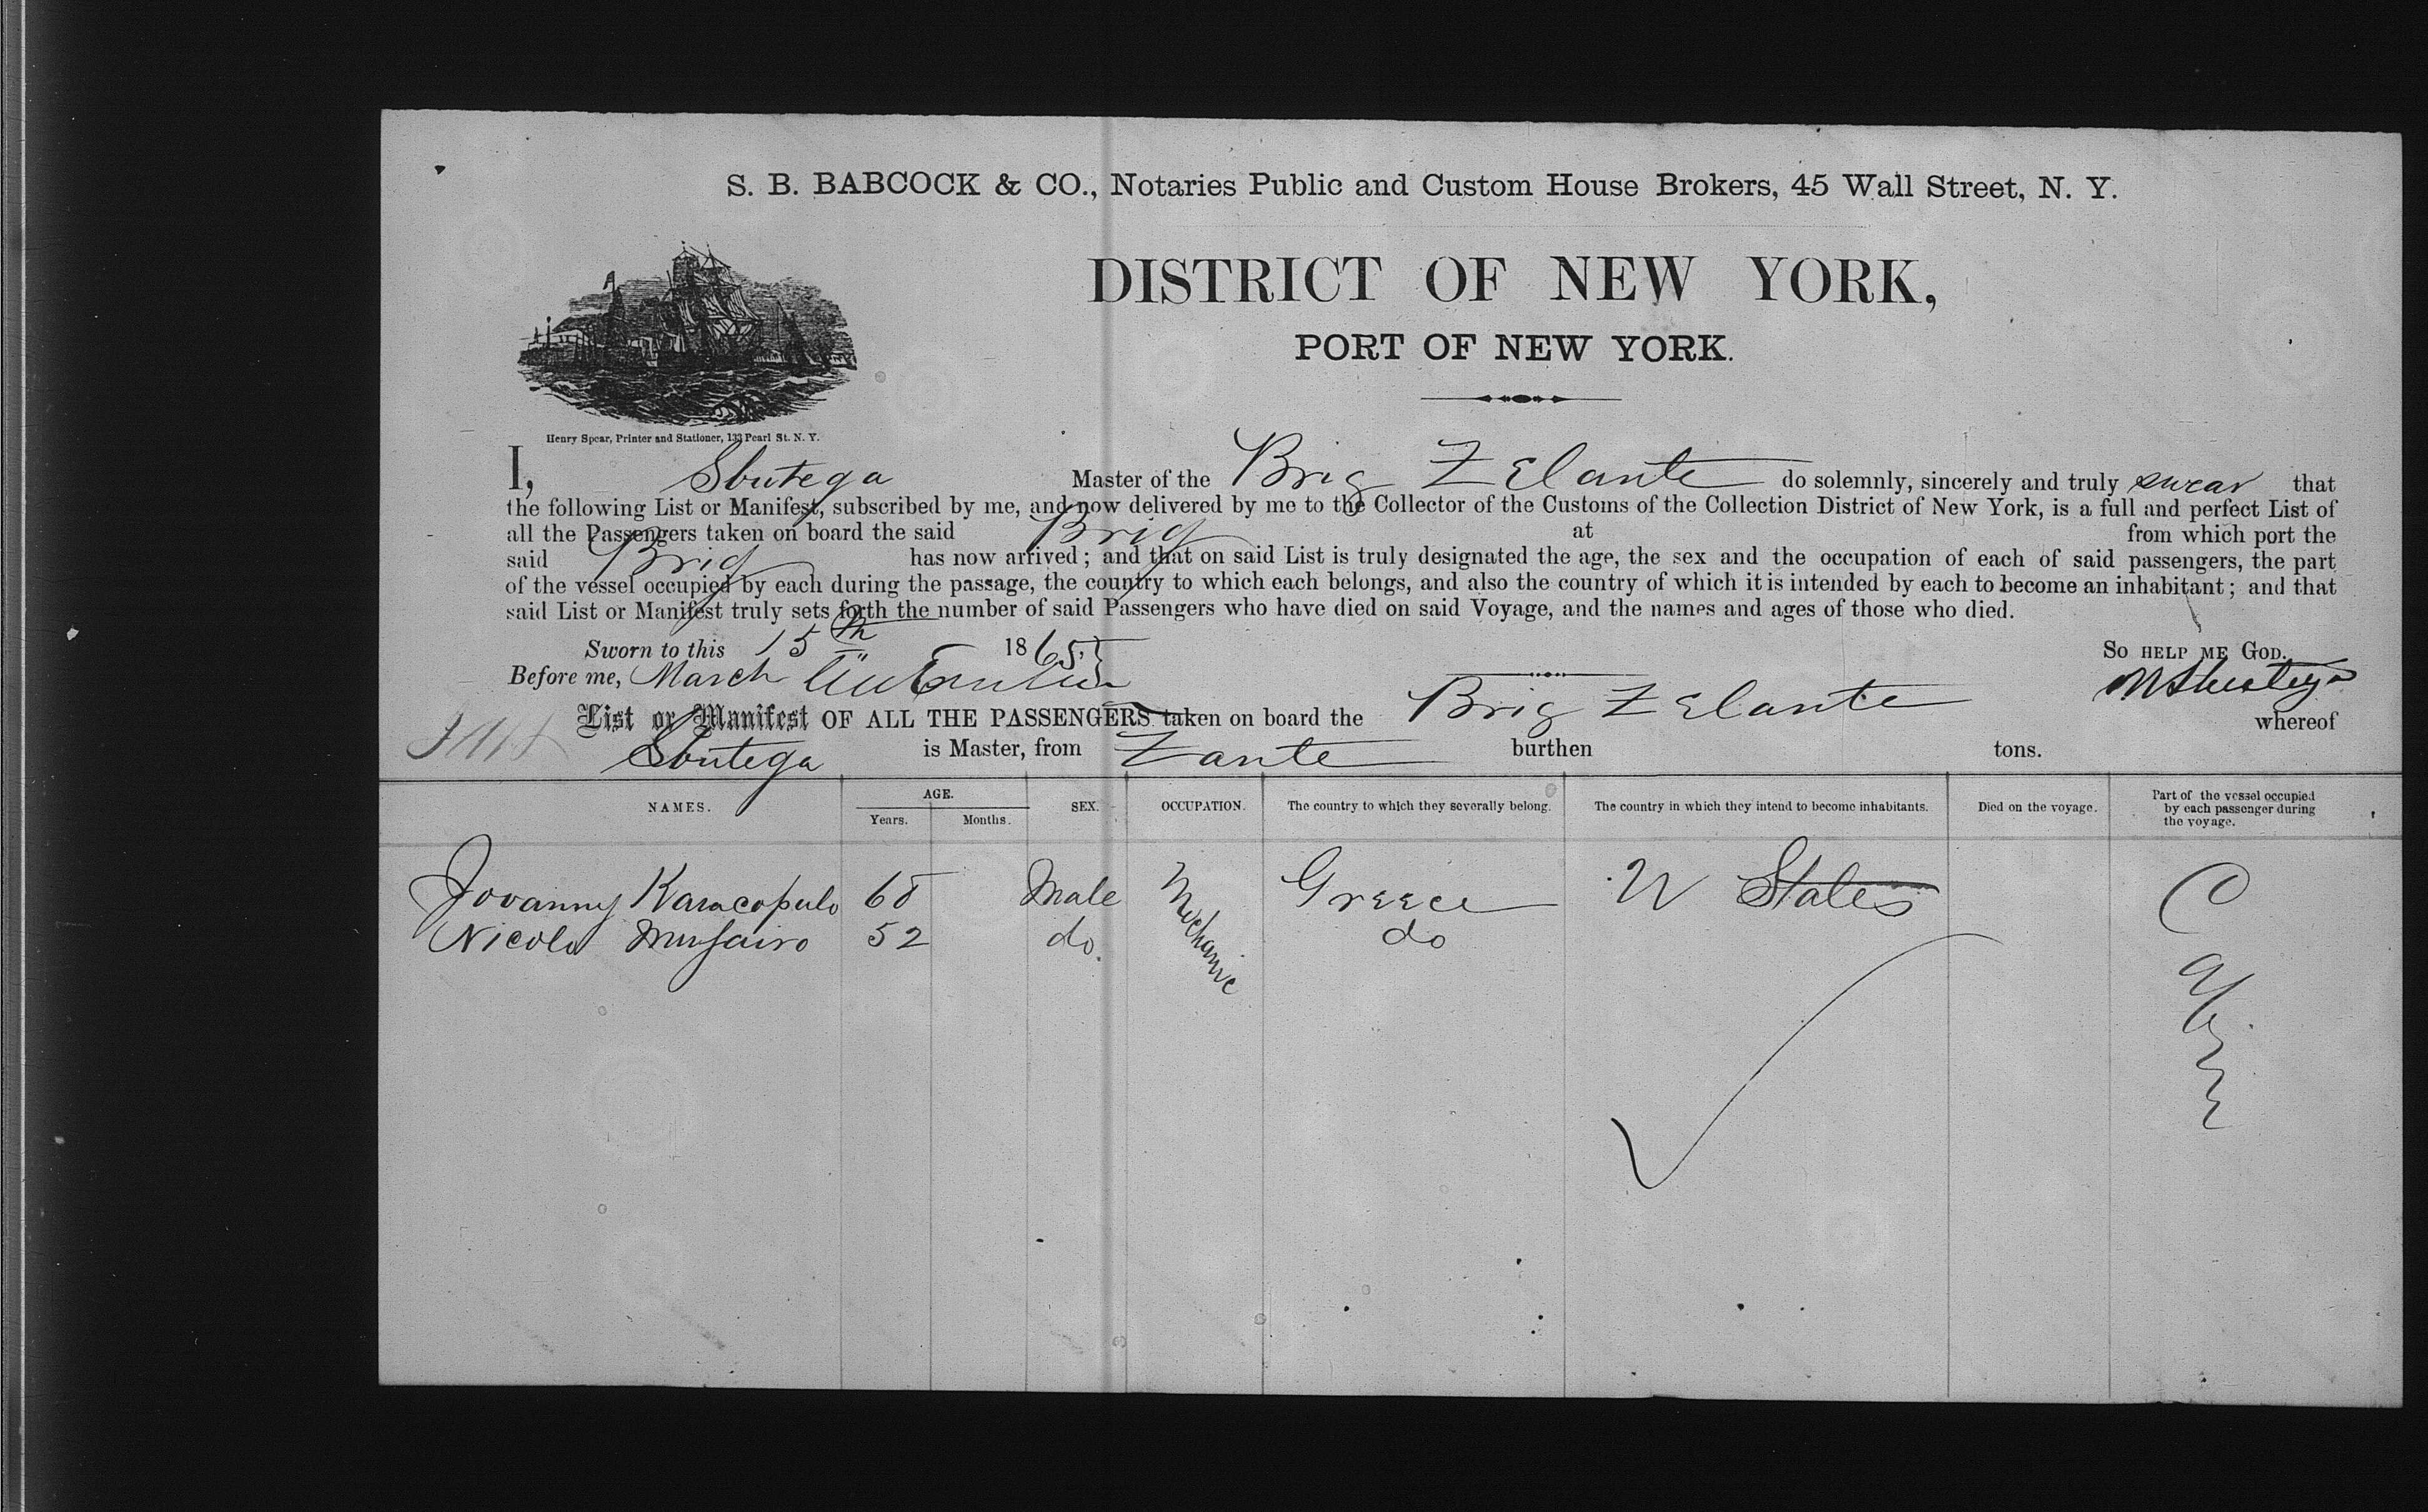 S. B. BABCOCK & CO., Notaries Public and Custom House Brokers, 45 Wall Street, N. Y.
DISTRICT OF NEW YORK,
PORT OF NEW YORK.
Henry Spear, Printer and Stationer, 133 Pearl St. N. Y.
I, Sbutega Master of the Brig Zelante do solemnly, sincerely and truly swear that
the following List or Manifest, subscribed by me, and now delivered by me to the Collector of the Customs of the Collection District of New York, is a full and perfect List of
all the Passengers taken on board the said Brig at from which port the
said Brig has now arrived; and that on said List is truly designated the age, the sex and the occupation of each of said passengers, the part
of the vessel occupied by each during the passage, the country to which each belongs, and also the country of which it is intended by each to become an inhabitant; and that
said List or Manifest truly sets forth the number of said Passengers who have died on said Voyage, and the names and ages of those who died.
Sworn to this 15th 1865 So HELP ME GOD.
Before me, March
List or Manifest OF ALL THE PASSENGERS taken on board the Brig Zelante whereof
Sbutega is Master, from Zante burthen tons.
NAMES. AGE. Years. Months. SEX. OCCUPATION. The country to which they severally belong. The country in which they intend to become inhabitants. Died on the voyage. Part of the vessel occupied by each passenger during the voyage.
Jovanny Karacopulo 68 Male Mechanic Greece U States Cabin
Nicolo 52 do. do